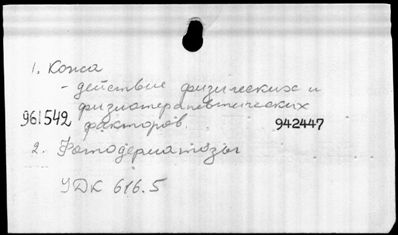 1. Кожа
- действие физических и
физиотерапевтических
961542 факторов. 942447
2. Фотодерматозы
УДК 616.5